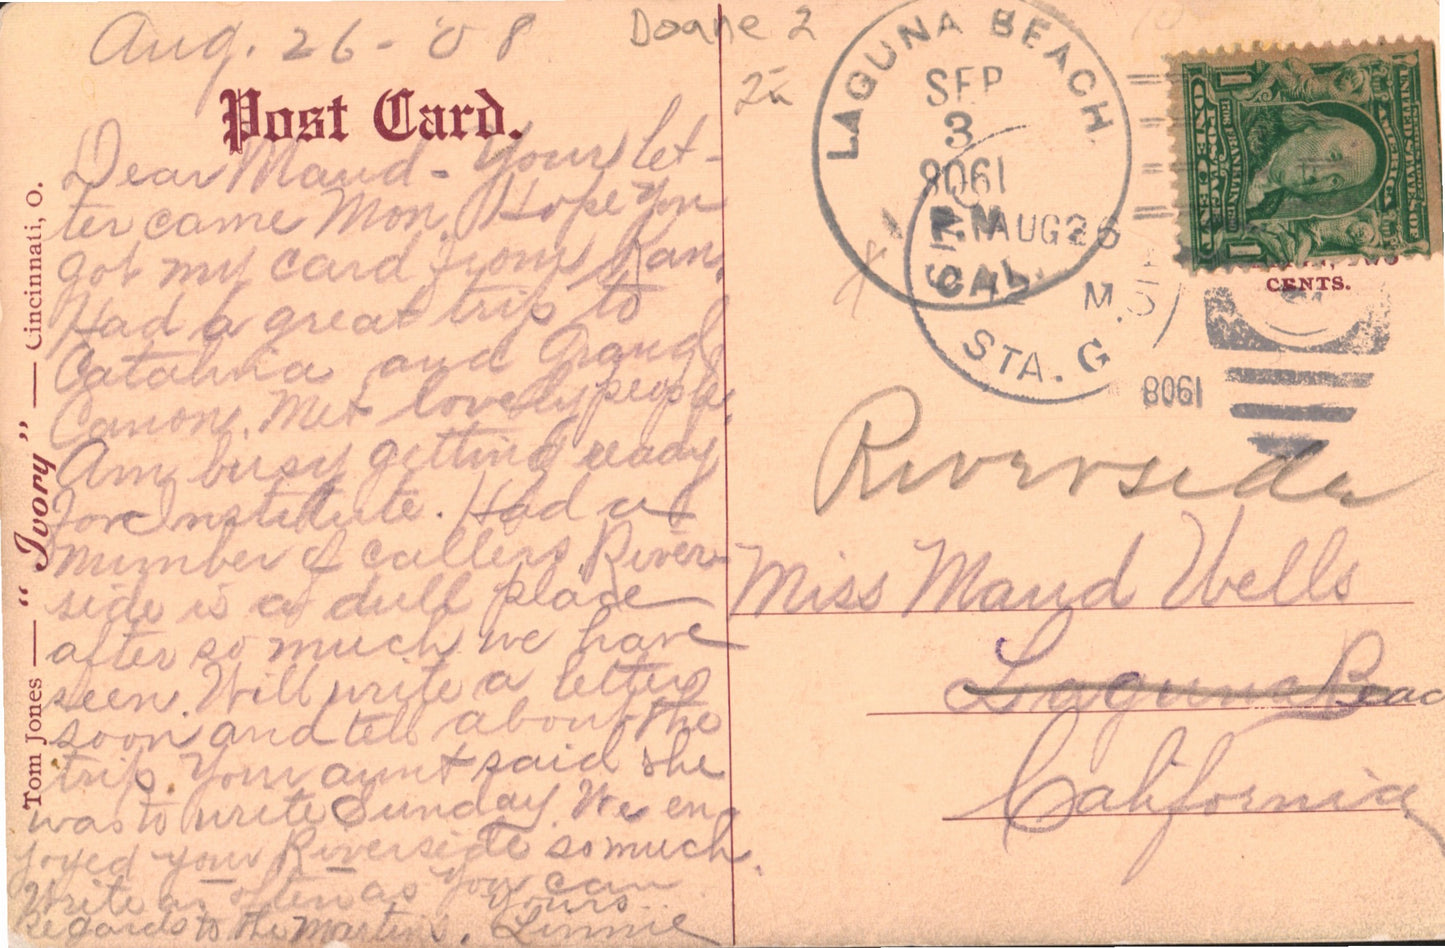 Aug. 26 - '08
Doane 2
Post Card.
Dear Maud - Your let-
ter came Mon. Hope you
got my card from Kan.
Had a great trip to
Catalina and Grand
Canon. Met lovely people
Am busy getting ready
for Institute. Had a
number of callers River-
side is a dull place
after so much we have
seen. Will write a letter
soon and tell about the
trip. Your aunt said she
was to write Sunday. We en-
joyed your Riverside so much.
Write as often as you can
Yours
Regards to the Martins. Linnie
Tom Jones — "Ivory" — Cincinnati, O.
LAGUNA BEACH
SEP
3
1908
CAL.
AUG 26
M.
STA. G
1908
ONE
UNITED STATES OF AMERICA
TWO
CENTS.
Riverside
Miss Maud Wells
Laguna Beac
California